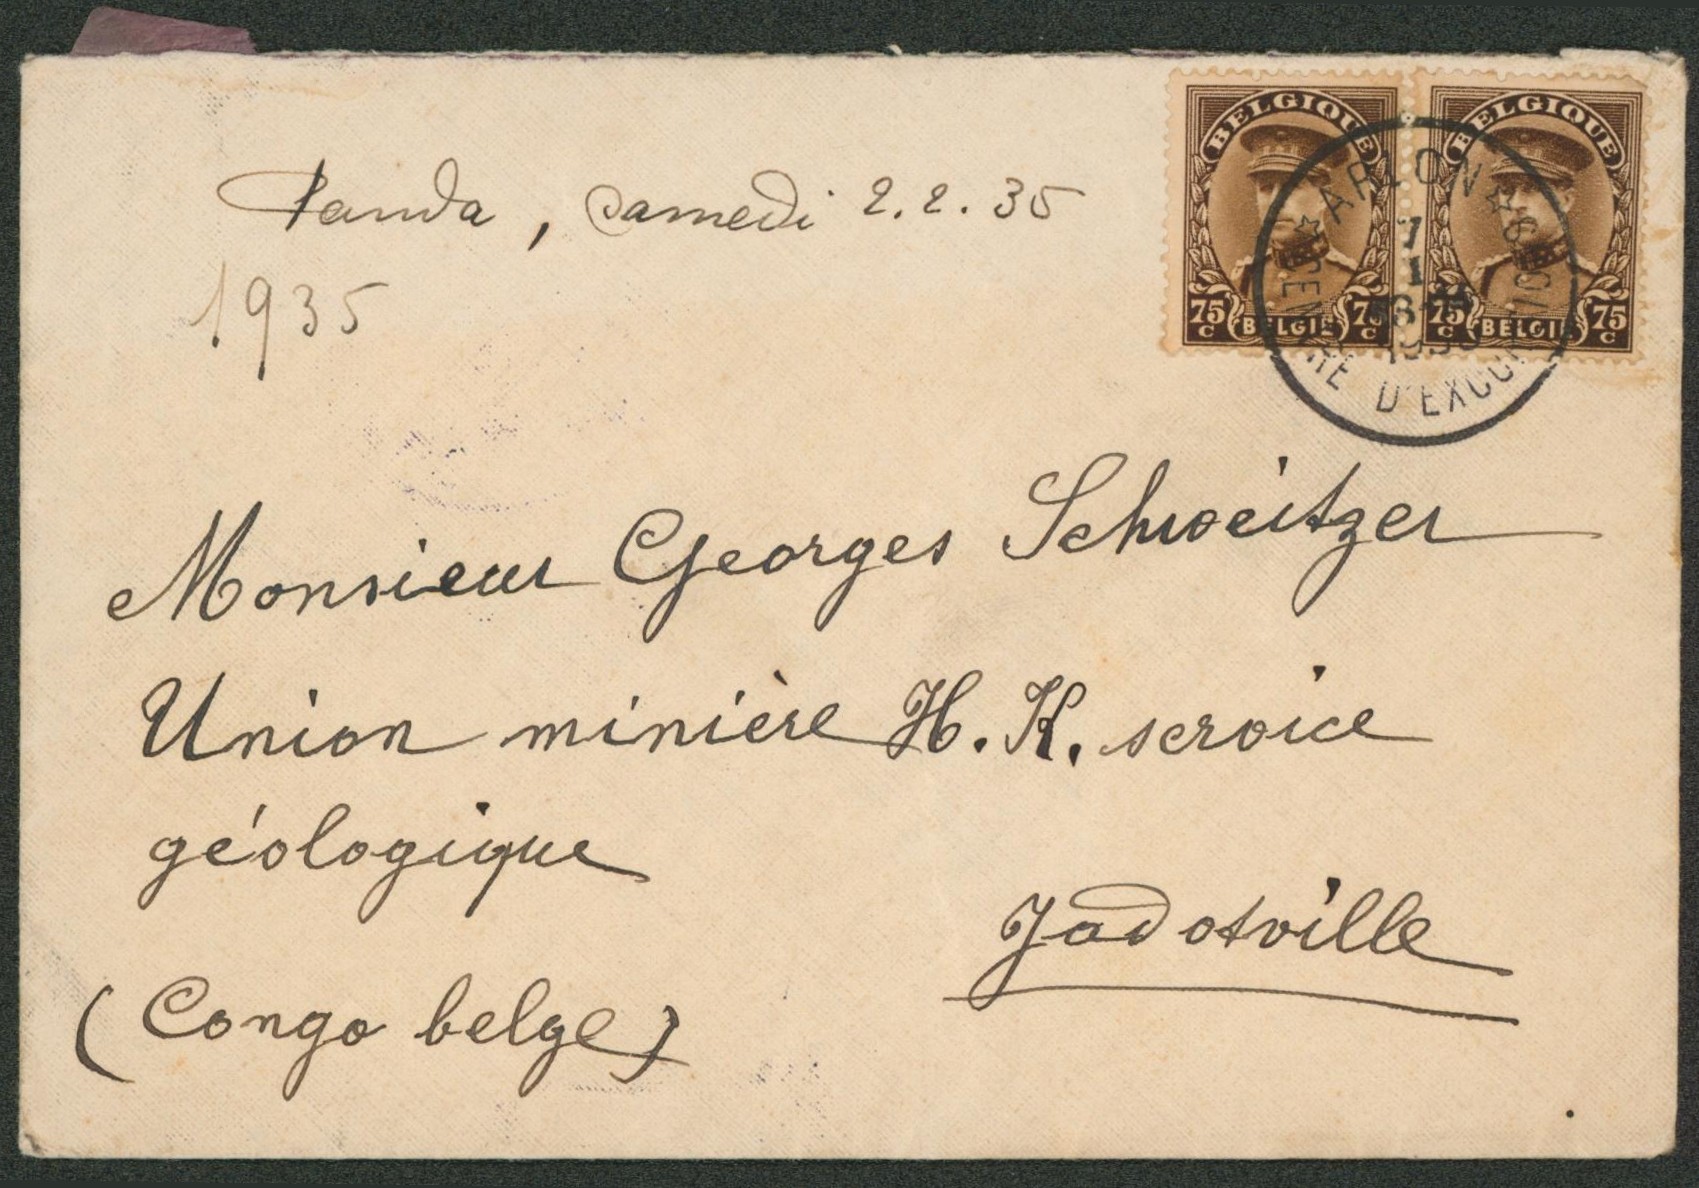 Panda, samedi 2.2.35
1935
BELGIQUE
75 C BELGIË 75 C
BELGIQUE
75 C BELGIË 75 C
ARLON
7
1
1935
CENTRE D'EXCURSIONS
Monsieur Georges Schweitzer
Union minière H. K. service
géologique
Jadotville
(Congo belge)